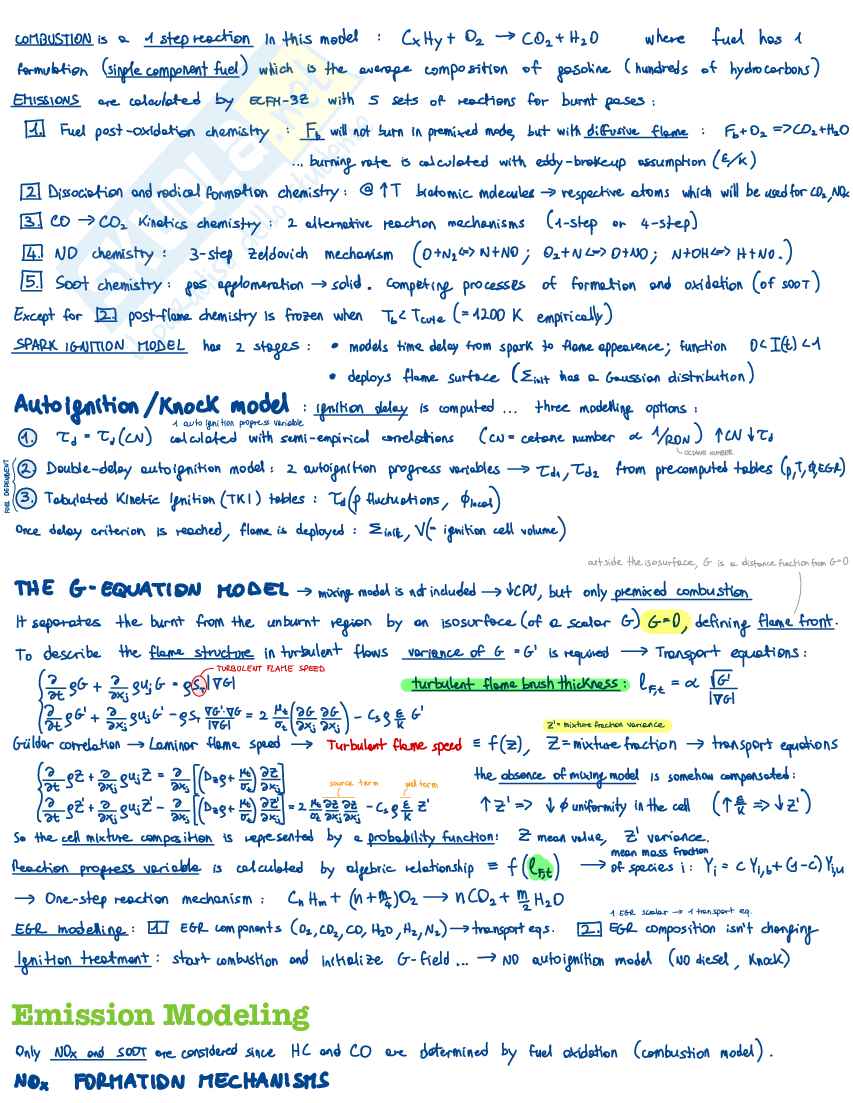 COMBUSTION is a 1 step reaction in this model : CxHy + O2 → CO2 + H2O where fuel has 1
formulation (single component fuel) which is the average composition of gasoline (hundreds of hydrocarbons)
EMISSIONS are calculated by ECFM-3Z with 5 sets of reactions for burnt gases :
1. Fuel post-oxidation chemistry : Fb will not burn in premixed mode, but with diffusive flame : Fb + O2 => CO2 + H2O
... burning rate is calculated with eddy-breakup assumption (ε/k)
2. Dissociation and radical formation chemistry : @ ↑T biatomic molecules → respective atoms which will be used for CO2, NOx
3. CO → CO2 Kinetics chemistry : 2 alternative reaction mechanisms (1-step or 4-step)
4. NO chemistry : 3-step Zeldovich mechanism (O+N2 <=> N+NO ; O2+N <=> O+NO ; N+OH <=> H+NO.)
5. Soot chemistry : gas agglomeration → solid. Competing processes of formation and oxidation (of SOOT)
Except for 2. post-flame chemistry is frozen when Tb < Tcute (= 1200 K empirically)
SPARK IGNITION MODEL has 2 stages : • models time delay from spark to flame appearence; function 0 < I(t) < 1
• deploys flame surface (Σinit has a Gaussian distribution)
Autoignition/Knock model : ignition delay is computed ... three modelling options :
1 auto ignition progress variable
1. τd = τd (CN) calculated with semi-empirical correlations (CN = cetane number ∝ 1/RON) ↑CN ↓τd
OCTANE NUMBER
FUEL DEPENDENT
2. Double-delay autoignition model : 2 autoignition progress variables → τd1, τd2 from precomputed tables (p,T,Φ,EGR)
3. Tabulated Kinetic Ignition (TKI) tables : τd (p fluctuations, ϕlocal)
Once delay criterion is reached, flame is deployed : Σinit, V(= ignition cell volume)
outside the isosurface, G is a distance function from G=0
THE G-EQUATION MODEL → mixing model is not included → ↓CPU, but only premixed combustion
It separates the burnt from the unburnt region by an isosurface (of a scalar G) G=0, defining flame front.
To describe the flame structure in turbulent flows variance of G = G' is required → Transport equations :
TURBULENT FLAME SPEED
∂/∂t ρG + ∂/∂xj ρuj G = ρSt |∇G| turbulent flame brush thickness : lF,t = ∝ √G' / |∇G|
∂/∂t ρG' + ∂/∂xj ρuj G' - ρSt ∇G'·∇G/|∇G| = 2 μt/σt (∂G/∂xj ∂G/∂xj) - Cs ρ ε/k G'
Z' = mixture fraction variance
Gülder correlation → Laminar flame speed → Turbulent flame speed ≡ f(z), Z = mixture fraction → transport equations
∂/∂t ρZ + ∂/∂xj ρuj Z = ∂/∂xj [(Dzρ + μt/σt) ∂Z/∂xj] the absence of mixing model is somehow compensated :
source term sink term
∂/∂t ρZ' + ∂/∂xj ρuj Z' - ∂/∂xj [(Dzρ + μt/σt) ∂Z'/∂xj] = 2 μt/σt ∂Z/∂xj ∂Z/∂xj - Cs ρ ε/k Z' ↑Z' => ↓ϕ uniformity in the cell (↑ε/k => ↓Z')
So the cell mixture composition is represented by a probability function : Z mean value, Z' variance.
Reaction progress variable is calculated by algebric relationship ≡ f(lF,t) → mean mass fraction of species i : Yi = c Yi,b + (1-c) Yi,u
→ One-step reaction mechanism : CnHm + (n+m/4) O2 → n CO2 + m/2 H2O
1 EGR scalar → 1 transport eq.
EGR modelling : 1. EGR components (O2, CO2, CO, H2O, H2, N2) → transport eqs. 2. EGR composition isn't changing
Ignition treatment : start combustion and initialize G-field ... → NO autoignition model (NO diesel, Knock)
Emission Modeling
Only NOx and SOOT are considered since HC and CO are determined by fuel oxidation (combustion model).
NOx FORMATION MECHANISMS